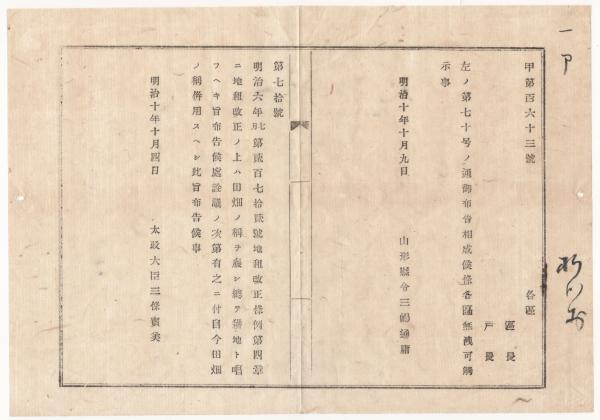 甲第百六十三號
各區
區長
戸長
左ノ第七十号ノ通御布告相成候條各區無洩可觸
示事
明治十年十月九日
山形縣令三島通庸
第七拾號
明治六年七月第貳百七拾貳號地租改正條例第四章
ニ地租改正ノ上ハ田畑ノ稱ヲ廢シ總テ耕地ト唱
フヘキ旨布告候處詮議ノ次第有之ニ付自今田畑
ノ稱併用スヘシ此旨布告候事
明治十年十月四日
太政大臣三條實美